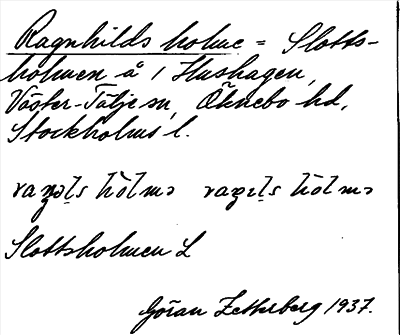 Ragnhilds holme = Slotts-
holmen å / Hushagen,
Väster-Tälje sn, Öknebo hd,
Stockholms l.
raŋəl̥s hòlmə raŋɪl̥s hòlmə
Slottsholmen L
Göran Zetterberg 1937.